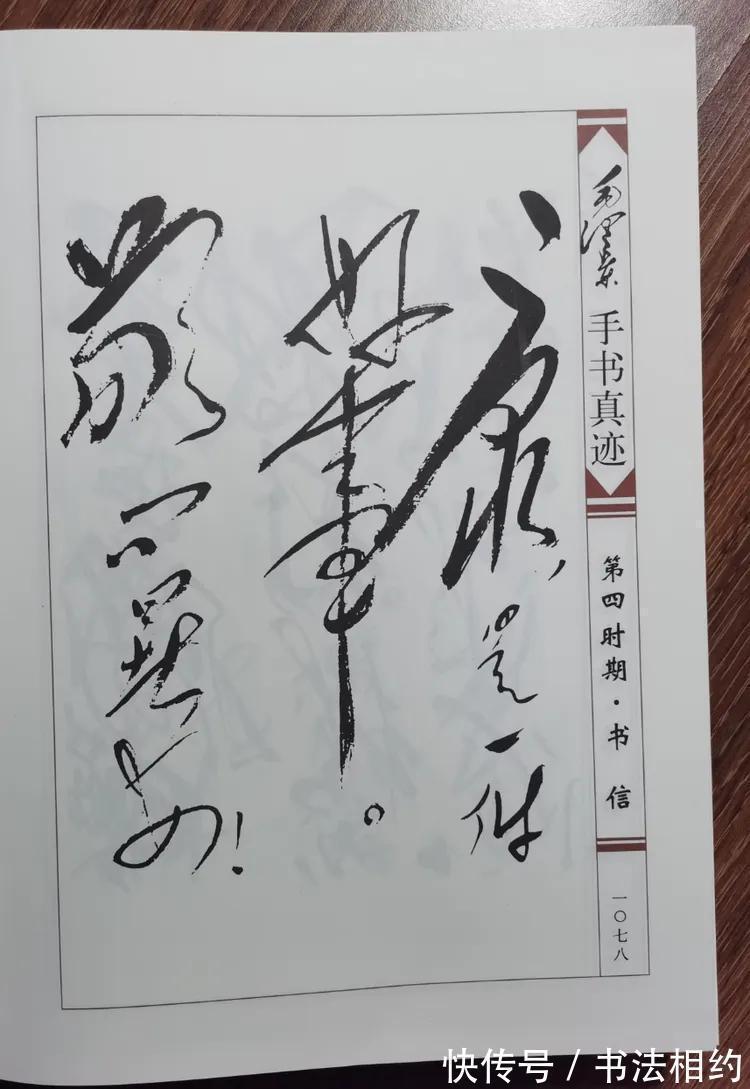 毛泽东 手书真迹
第四时期·书信
一〇七八
康，是一件
好事。
敬问安！
快传号 / 书法相约